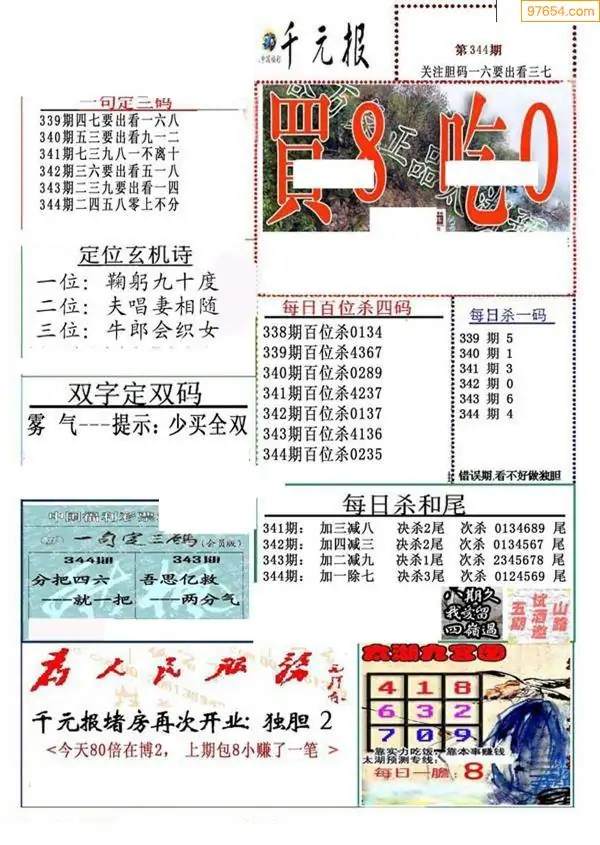 97654.com
千元报
第344期
关注胆码一六要出看三七
一句定三码
339期四七要出看一六八
340期五三要出看九一二
341期七三九八一不离十
342期三六要出看五一八
343期二三九要出看一四
344期二四五八零上不分
買8 吃0
定位玄机诗
一位: 鞠躬九十度
二位: 夫唱妻相随
三位: 牛郎会织女
每日百位杀四码
338期百位杀0134
339期百位杀4367
340期百位杀0289
341期百位杀4237
342期百位杀0137
343期百位杀4136
344期百位杀0235
每日杀一码
339 期 5
340 期 1
341 期 3
342 期 0
343 期 6
344 期 4
错误期,看不好做独胆
双字定双码
雾 气---提示: 少买全双
每日杀和尾
341期: 加三减八 决杀2尾 次杀 0134689 尾
342期: 加四减三 决杀2尾 次杀 0134567 尾
343期: 加二减九 决杀1尾 次杀 2345678 尾
344期: 加一除七 决杀3尾 次杀 0124569 尾
一句定三码(会员版)
344期
分把四六
---就一把
343期
吾思亿救
---两分气
八期久
我爱留
四岭過
试酒邀
五期
山路
为人民服务
千元报堵房再次开业: 独胆 2
<今天80倍在博2, 上期包8小赚了一笔 >
太湖九宫图
4 1 8
6 3 2
7 0 9
靠实力吃饭, 靠本事赚钱
太湖预测专线:
每日一胆: 8